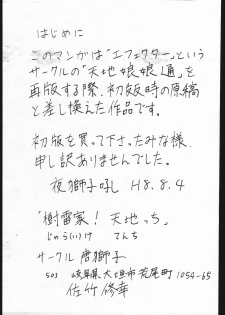 はじめに
このマンガは「エフェクター」という
サークルの「天地娘娘通」を
再版する際、初版時の原稿
と差し換えた作品です。
初版を買って下さったみな様、
申し訳ありませんでした。
夜獅子吼し H8.8.4
「樹雷家！天地っち」
じゅら(い)け てんち
サークル 唐獅子
503 岐阜県大垣市荒尾町1054-65
佐竹修幸